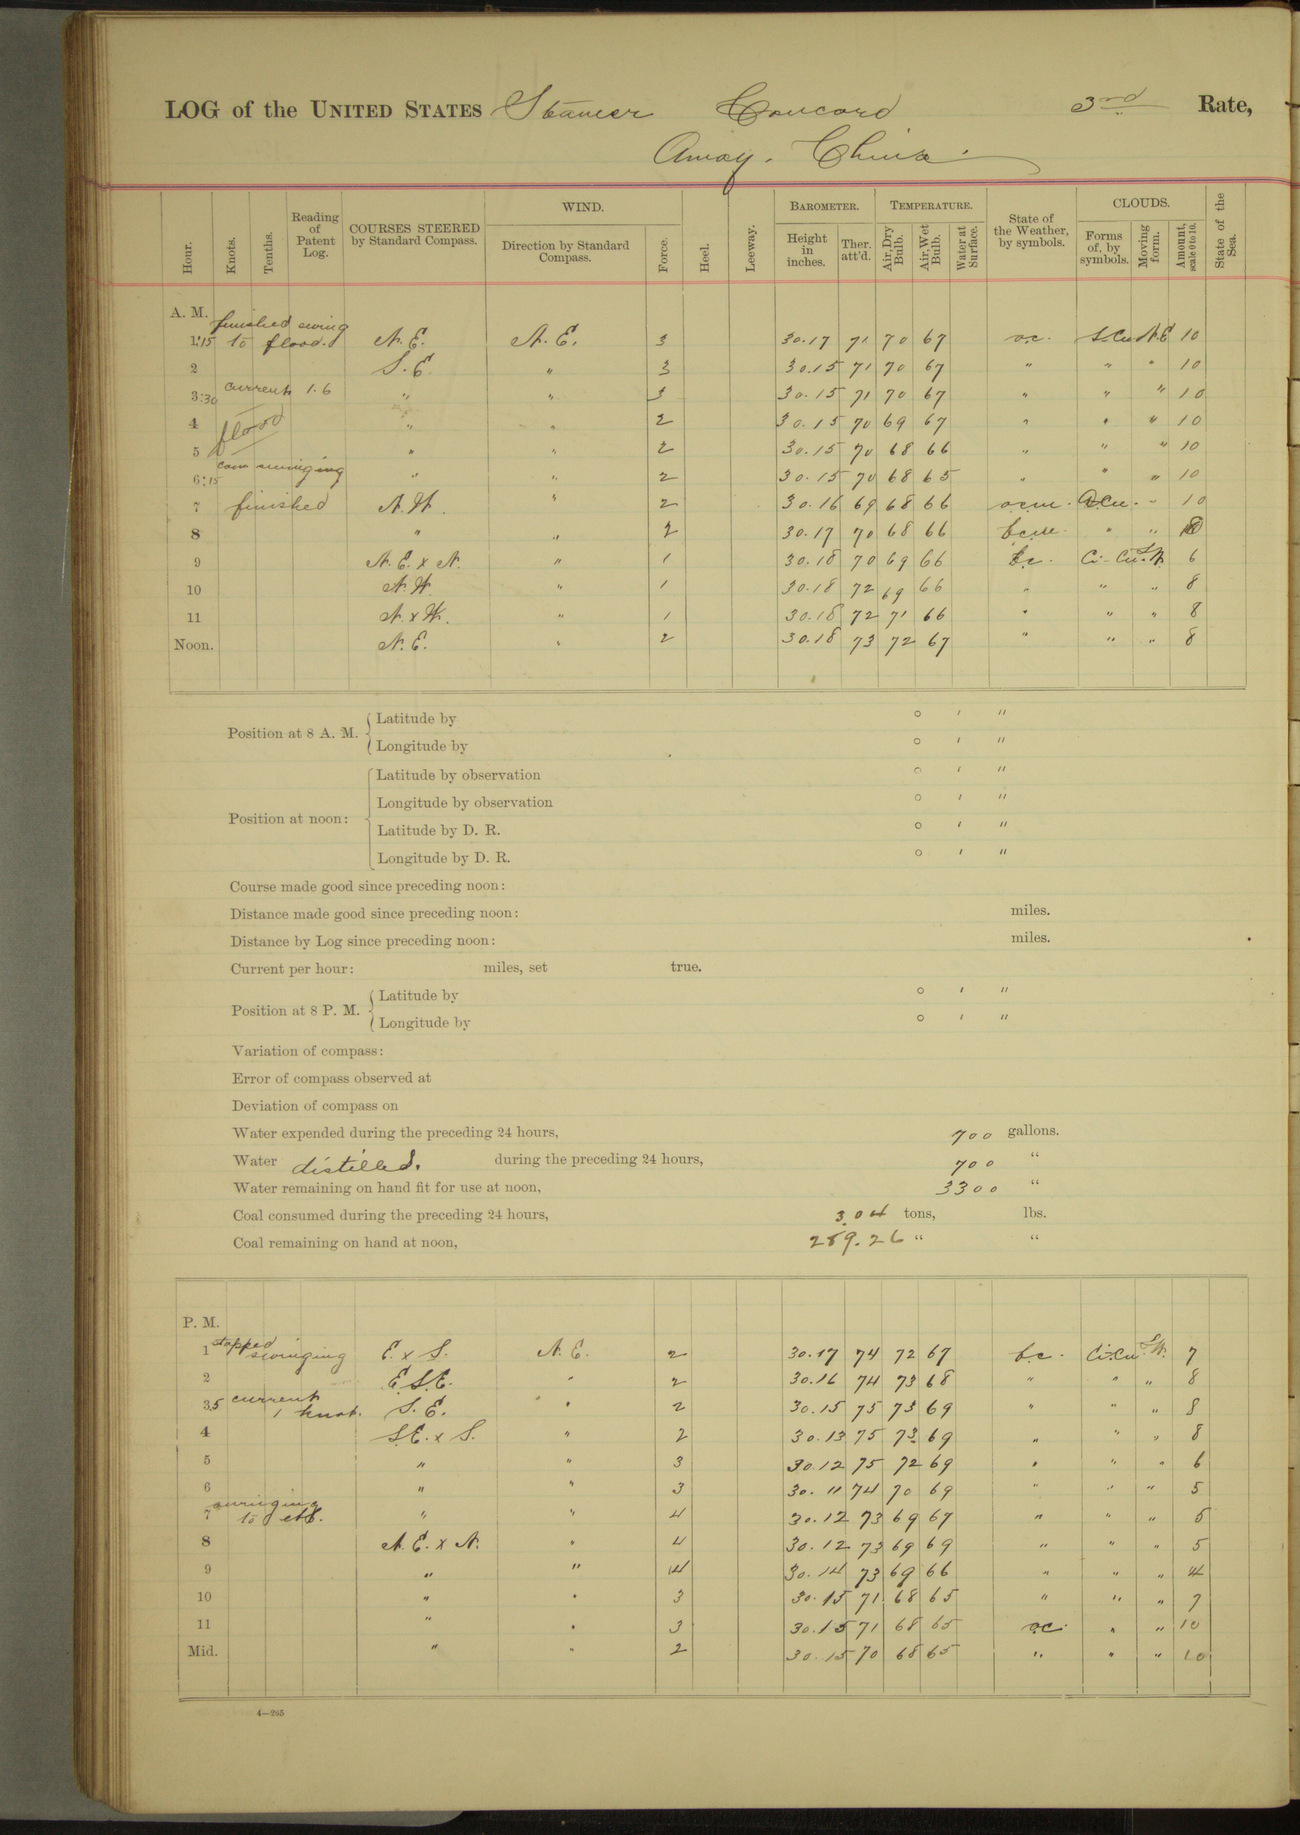 LOG of the UNITED STATES Steamer Concord 3rd Rate,
Amoy. China.
Hour. Knots. Tenths. Reading of Patent Log. COURSES STEERED by Standard Compass. WIND. Direction by Standard Compass. Force. Heel. Leeway. BAROMETER. Height in inches. Ther. att'd. TEMPERATURE. Air, Dry Bulb. Air, Wet Bulb. Water at Surface. State of the Weather, by symbols. CLOUDS. Forms of, by symbols. Moving form. Amount, scale 0 to 10. State of the Sea.
A. M. finished swing
1:15 to flood. N.E. N.E. 3 30.17 71 70 67 o.c. S.Cu N.E 10
2 S.E. " 3 30.15 71 70 67 " " " 10
3:30 current 1.6 " " 3 30.15 71 70 67 " " " 10
4 flood " " 2 30.15 70 69 67 " " " 10
5 " " 2 30.15 70 68 66 " " " 10
6:15 com swinging " " 2 30.15 70 68 65 " " " 10
7 finished N.W. " 2 30.16 69 68 66 o.c.m. Cu. " 10
8 " " 2 30.17 70 68 66 b.c.m. " " 8
9 N.E. x N. " 1 30.18 70 69 66 b.c. Ci-Cu. S.W. 6
10 N.W. " 1 30.18 72 69 66 " " " 8
11 N. x W. " 1 30.18 72 71 66 " " " 8
Noon. N.E. " 2 30.18 73 72 67 " " " 8
Position at 8 A. M. { Latitude by ° ′ ″
Longitude by ° ′ ″
Position at noon: { Latitude by observation ° ′ ″
Longitude by observation ° ′ ″
Latitude by D. R. ° ′ ″
Longitude by D. R. ° ′ ″
Course made good since preceding noon:
Distance made good since preceding noon: miles.
Distance by Log since preceding noon: miles.
Current per hour: miles, set true.
Position at 8 P. M. { Latitude by ° ′ ″
Longitude by ° ′ ″
Variation of compass:
Error of compass observed at
Deviation of compass on
Water expended during the preceding 24 hours, 700 gallons.
Water distilled. during the preceding 24 hours, 700 "
Water remaining on hand fit for use at noon, 3300 "
Coal consumed during the preceding 24 hours, 3.04 tons, lbs.
Coal remaining on hand at noon, 289.26 " "
P. M.
1 stopped swinging E. x S. N.E. 2 30.17 74 72 67 b.c. Ci.Cu. S.W. 7
2 E.S.E. " 2 30.16 74 73 68 " " " 8
3.5 current 1 knot. S.E. " 2 30.15 75 73 69 " " " 8
4 S.E. x S. " 2 30.13 75 73 69 " " " 8
5 " " 3 30.12 75 72 69 " " " 6
6 " " 3 30.11 74 70 69 " " " 5
7 swinging to ebb. " " 4 30.12 73 69 67 " " " 5
8 N.E. x N. " 4 30.12 73 69 69 " " " 5
9 " " 4 30.14 73 69 66 " " " 4
10 " " 3 30.15 71 68 65 " " " 7
11 " " 3 30.15 71 68 65 o.c. " " 10
Mid. " " 2 30.15 70 68 65 " " " 10
4—265